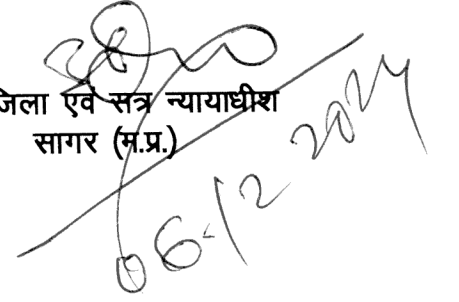 जिला एवं सत्र न्यायाधीश
सागर (म.प्र.)
06/12 2024